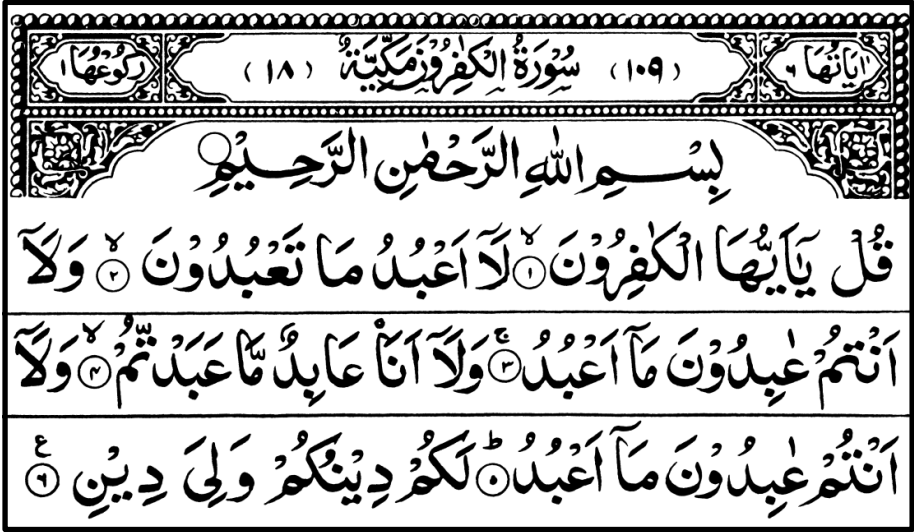 اٰيَاتُهَا ٦ (١٠٩) سُوْرَةُ الْكٰفِرُوْنَ مَكِّيَّةٌ (١٨) رُكُوْعُهَا ١
بِسْمِ اللّٰهِ الرَّحْمٰنِ الرَّحِيْمِ
قُلْ يٰۤاَيُّهَا الْكٰفِرُوْنَ ۙ‏﴿١﴾ لَاۤ اَعْبُدُ مَا تَعْبُدُوْنَ ۙ‏﴿٢﴾ وَلَاۤ
اَنْتُمْ عٰبِدُوْنَ مَاۤ اَعْبُدُ ۚ‏﴿٣﴾ وَلَاۤ اَنَا عَابِدٌ مَّا عَبَدْتُّمْ ۙ‏﴿٤﴾ وَلَاۤ
اَنْتُمْ عٰبِدُوْنَ مَاۤ اَعْبُدُ ؕ‏﴿٥﴾ لَكُمْ دِيْنُكُمْ وَلِيَ دِيْنِ ﴿٦﴾ ع